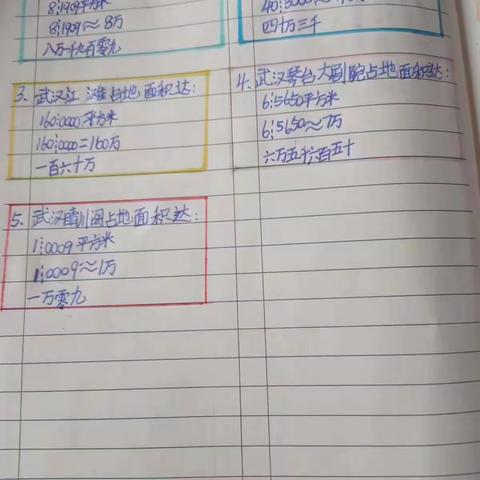 8¦1909平方米
8¦1909≈8万
八万一千九百零九
四十万三千
3. 武汉江滩占地面积达:
160¦0000平方米
160¦0000=160万
一百六十万
4. 武汉琴台大剧院占地面积达:
6¦5650平方米
6¦5650≈7万
六万五千六百五十
5. 武汉晴川阁占地面积达:
1¦0009平方米
1¦0009≈1万
一万零九